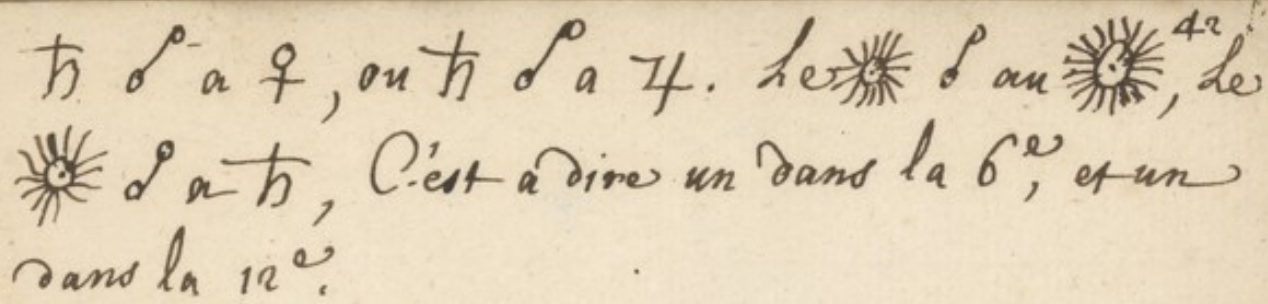 ♄ ☍ a ♀, ou ♄ ☍ a ♃. Le ☉ ☍ au ☉, 42 Le
☉ ☍ a ♄, C'est a dire un dans la 6e, et un
dans la 12e.